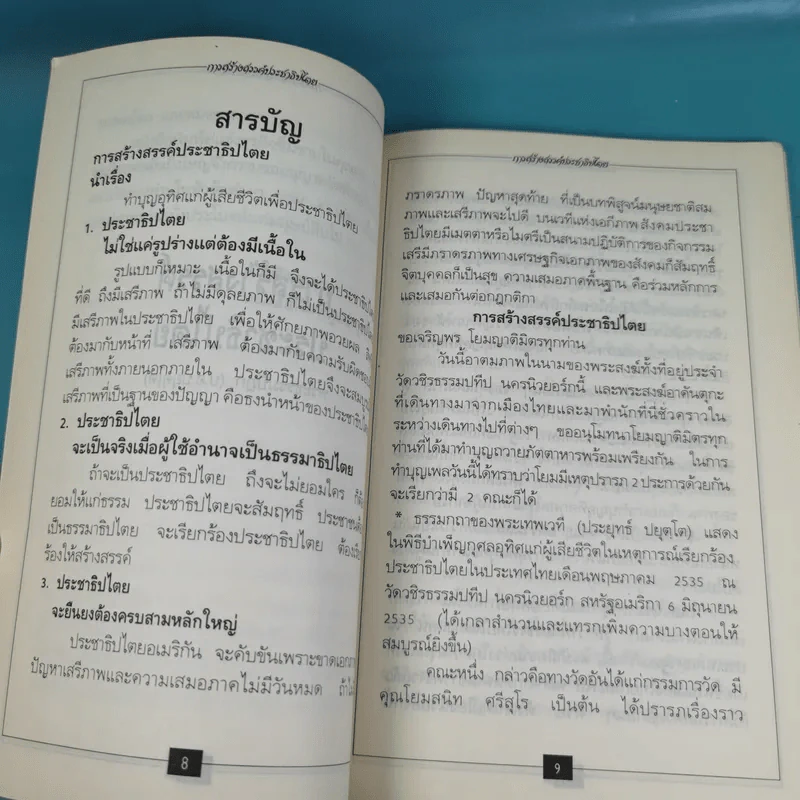 การสร้างสรรค์ประชาธิปไตย
สารบัญ
การสร้างสรรค์ประชาธิปไตย
นำเรื่อง
ทำบุญอุทิศแก่ผู้เสียชีวิตเพื่อประชาธิปไตย
1. ประชาธิปไตย
ไม่ใช่แค่รูปร่างแต่ต้องมีเนื้อใน
รูปแบบก็เหมาะ เนื้อในก็มี จึงจะได้ประชาธิปไตย
ที่ดี ถึงมีเสรีภาพ ถ้าไม่มีดุลยภาพ ก็ไม่เป็นประชาธิปไตย
มีเสรีภาพในประชาธิปไตย เพื่อให้ศักยภาพอวยผล
ต้องมากับหน้าที่ เสรีภาพ ต้องมากับความรับผิดชอบ
เสรีภาพทั้งภายนอกภายใน ประชาธิปไตยจึงจะสมบูรณ์
เสรีภาพที่เป็นฐานของปัญญา คือธงนำหน้าของประชาธิปไตย
2. ประชาธิปไตย
จะเป็นจริงเมื่อผู้ใช้อำนาจเป็นธรรมาธิปไตย
ถ้าจะเป็นประชาธิปไตย ถึงจะไม่ยอมใคร
ยอมให้แก่ธรรม ประชาธิปไตยจะสัมฤทธิ์ ประชาชน
เป็นธรรมาธิปไตย จะเรียกร้องประชาธิปไตย ต้อง
ร้องให้สร้างสรรค์
3. ประชาธิปไตย
จะยืนยงต้องครบสามหลักใหญ่
ประชาธิปไตยอเมริกัน จะคับขันเพราะขาดเอกภาพ
ปัญหาเสรีภาพและความเสมอภาคไม่มีวันหมด ถ้าไม่
8
การสร้างสรรค์ประชาธิปไตย
ภราดรภาพ ปัญหาสุดท้าย ที่เป็นบทพิสูจน์มนุษยชาติสม
ภาพและเสรีภาพจะไปดี บนเวทีแห่งเอกีภาพ สังคมประชา
ธิปไตยมีเมตตาหรือไมตรีเป็นสนามปฏิบัติการของกิจกรรม
เสรีมีภราดรภาพทางเศรษฐกิจเอกภาพของสังคมก็สัมฤทธิ์
จิตบุคคลก็เป็นสุข ความเสมอภาคพื้นฐาน คือร่วมหลักการ
และเสมอกันต่อกฎกติกา
การสร้างสรรค์ประชาธิปไตย
ขอเจริญพร โยมญาติมิตรทุกท่าน
วันนี้อาตมภาพในนามของพระสงฆ์ทั้งที่อยู่ประจำ
วัดวชิรธรรมปทีป นครนิวยอร์กนี้ และพระสงฆ์อาคันตุกะ
ที่เดินทางมาจากเมืองไทยและมาพำนักที่นี่ชั่วคราวใน
ระหว่างเดินทางไปที่ต่างๆ ขออนุโมทนาโยมญาติมิตรทุก
ท่านที่ได้มาทำบุญถวายภัตตาหารพร้อมเพรียงกัน ในการ
ทำบุญเพลวันนี้ได้ทราบว่าโยมมีเหตุปรารภ 2 ประการด้วยกัน
จะเรียกว่ามี 2 คณะก็ได้
* ธรรมกถาของพระเทพเวที (ประยุทธ์ ปยุตฺโต) แสดง
ในพิธีบำเพ็ญกุศลอุทิศแก่ผู้เสียชีวิตในเหตุการณ์เรียกร้อง
ประชาธิปไตยในประเทศไทยเดือนพฤษภาคม 2535 ณ
วัดวชิรธรรมปทีป นครนิวยอร์ก สหรัฐอเมริกา 6 มิถุนายน
2535 (ได้เกลาสำนวนและแทรกเพิ่มความบางตอนให้
สมบูรณ์ยิ่งขึ้น)
คณะหนึ่ง กล่าวคือทางวัดอันได้แก่กรรมการวัด มี
คุณโยมสนิท ศรีสุโร เป็นต้น ได้ปรารภเรื่องราว
9